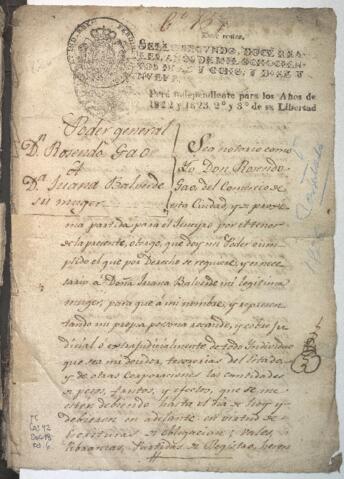 Doce reales.
SELLO SEGUNDO, DOCE REA-
LES, AÑOS DE MIL OCHOCIEN-
TOS DIEZ Y OCHO, Y DIEZ Y
NUEVE.
Perú independiente para los Años de
1822 y 1823. 2º y 3º de su Libertad
Poder general
Dn. Rosendo Gao
A
Da. Juana Balverde
su muger
Sea notorio como
Yo Don Rosendo
Gao, del Comercio de
esta Ciudad, y de proxi-
ma partida para el
por el tenor
de la presente, otorgo, que doy mi Poder cum-
plido el que por Derecho se requiere, y nece-
sario a Doña Juana Balverde mi legitima
muger, para que à mi nombre, y represen-
tando mi propia persona
dicial ò extrajudicialmente de todo Individuo
que sea mi deudor, tesorerias del Estado,
y de otras Corporaciones las cantidades
de pesos, frutos, y efectos, que se me
esten debiendo hasta el dia de hoy y
debieren en adelante en virtud de
Escrituras de obligacion, vales,
libranzas, Partidas de Registro,